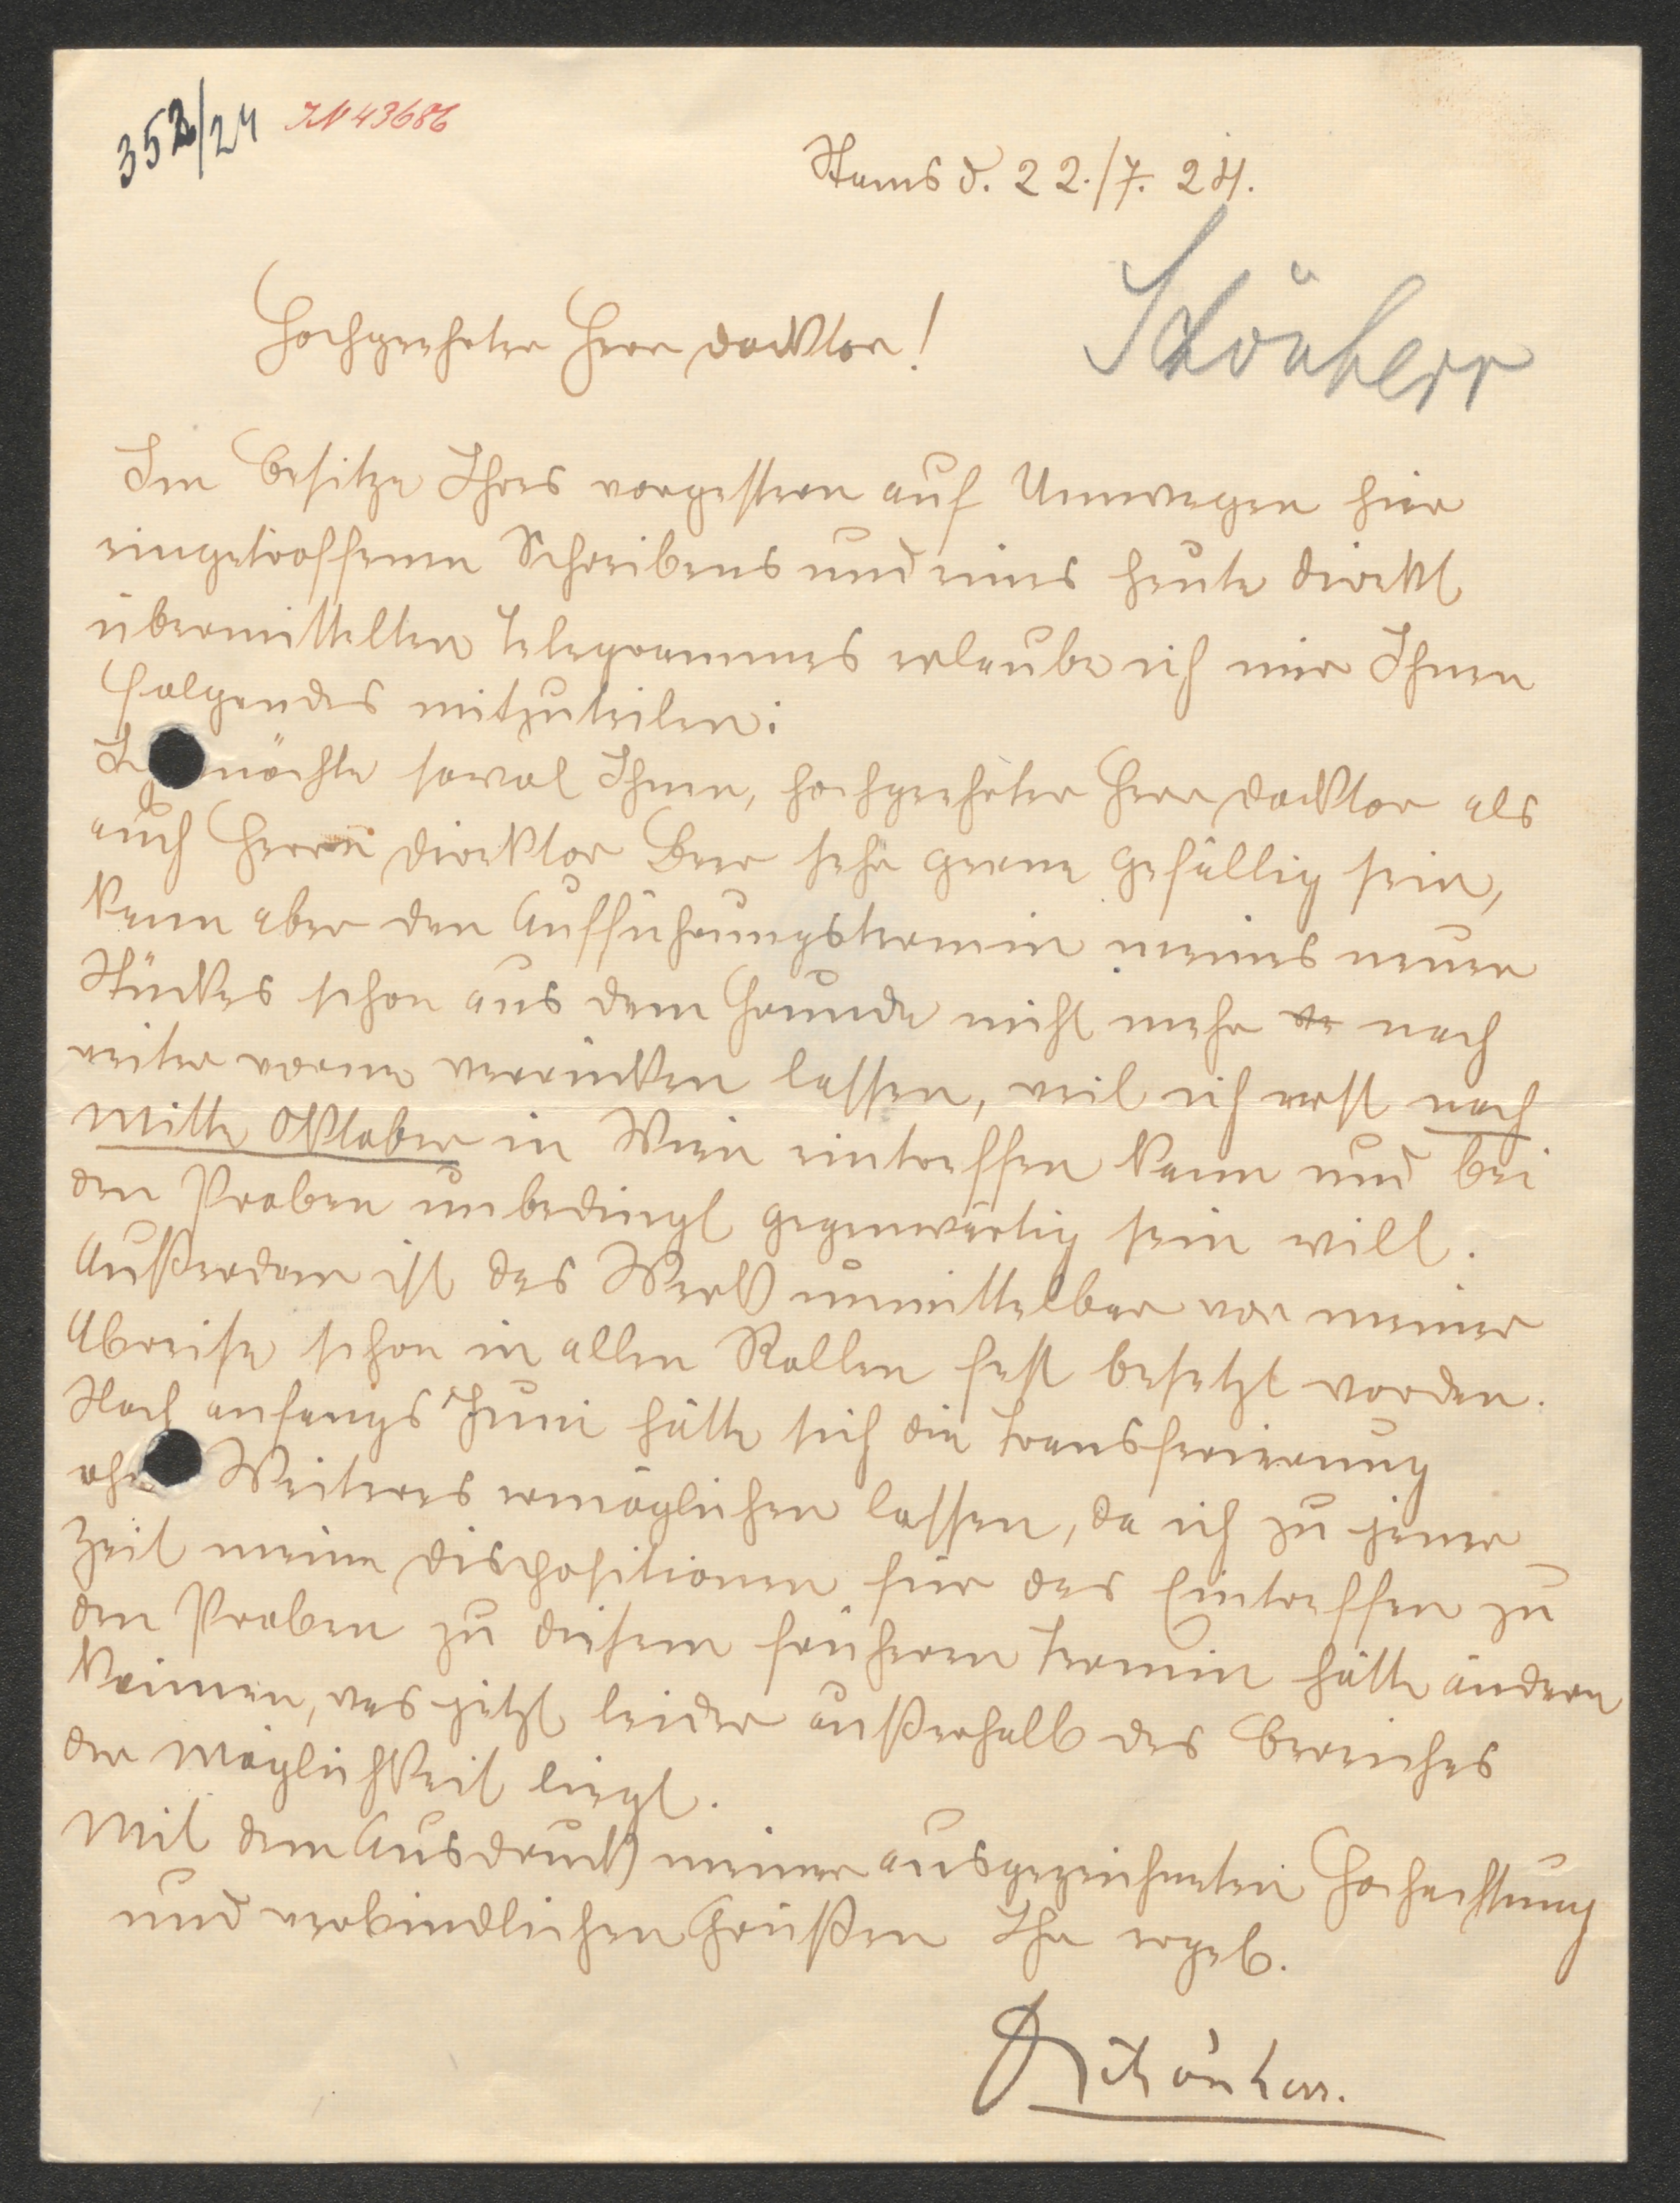 352/24 IN 43686
Stams d. 22./7. 24.
Schönherr
Hochgeehrter Herr Docktor!
Im Besitze Ihres vorgestern auf Umwegen hier
eingetroffenen Schreibens und eines heute direkt
übermittelten Telegrammes erlaube ich mir Ihnen
Folgendes mitzuteilen:
Ich möchte sowol Ihnen, hochgeehrter Herr Docktor als
auch Herrn Direcktor Beer sehr gerne gefällig sein,
kann aber den Aufführungstermin meines neuen
Stückes schon aus dem Grunde nicht mehr noch
weiter vorne verrücken lassen, weil ich erst nach
Mitte Oktober in Wien eintreffen kann und bei
den Proben unbedingt gegenwärtig sein will.
Außerdem ist das Werk unmittelbar vor meiner
Abreise schon in allen Rollen fest besetzt worden.
Noch anfangs Juni hätte sich die Transferierung
ohne Weiteres ermöglichen lassen, da ich zu jener
Zeit meine Dispositionen für das Eintreffen zu
den Proben zu diesem früheren Termin hätte ändern
können, was jetzt leider außerhalb des Bereiches
der Möglichkeit liegt.
Mit dem Ausdruck meiner ausgezeichneten Hochachtung
und verbindlichen Grüßen Ihr ergeb.
DrSchönherr.